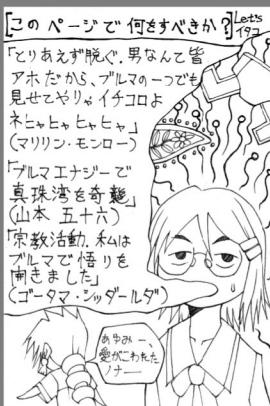 [このページで何をすべきか?]
Let's
イタコ
「とりあえず脱ぐ.男なんて皆
アホだから、ブルマの一つでも
見せてやりゃイチコロよ
ネヒャヒャヒャヒャ」
(マリリン・モンロー)
「ブルマエナジーで
真珠湾を奇襲」
(山本 五十六)
「宗教活動.私は
ブルマで悟りを
開きました」
(ゴータマ・シッダールダ)
あゆみー、
愛がこわれた
ノナー